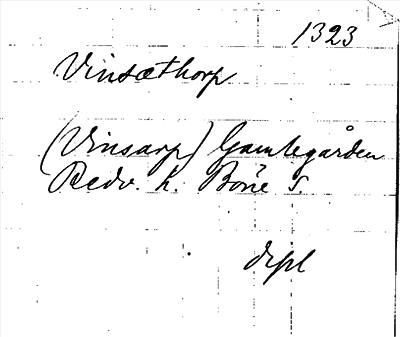 1323
Vinsæthorp
(Vinsarp) Gamlegården
Redv. h. Böne s.
dipl